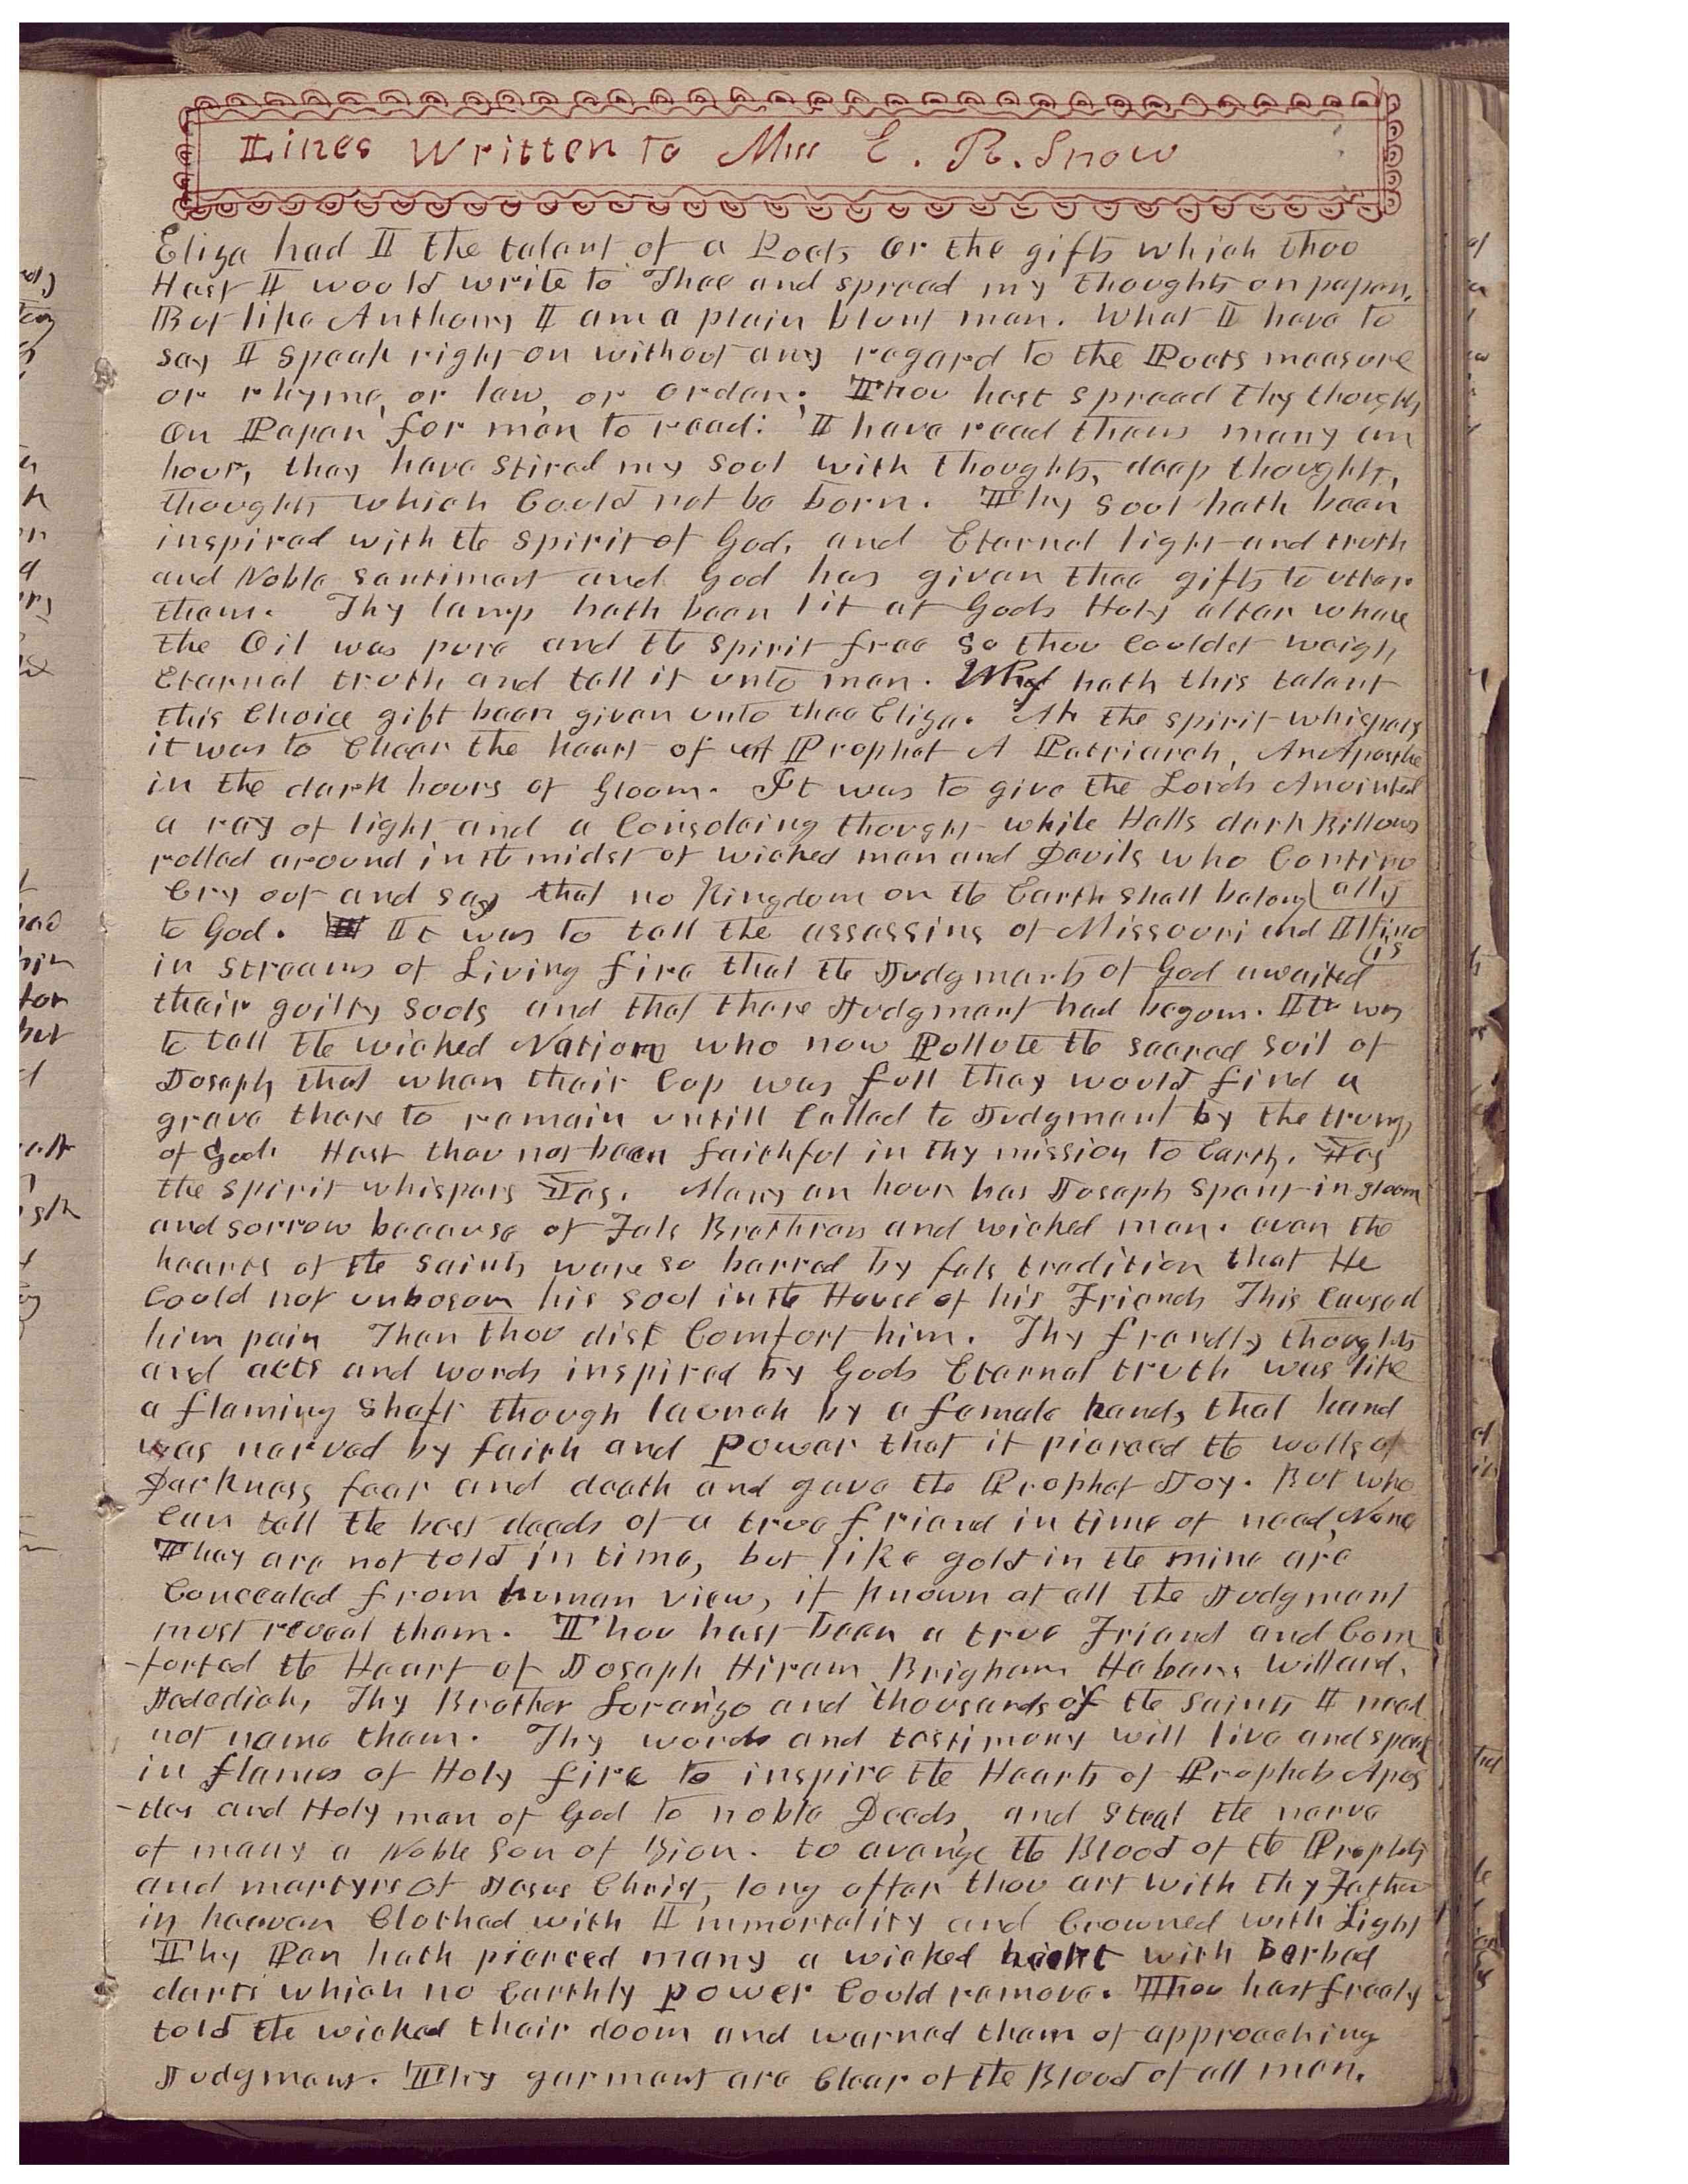 Lines Written to Miss E. R. Snow
Eliza had I the talent of a Poet, or the gifts which thou
Hast I would write to Thee and spread my thoughts on paper,
But like Anthony I am a plain blunt man. What I have to
say I speak right on without any regard to the Poets measure
or rhyme, or law, or order; Thou hast spread thy thoughts
on Paper for men to read: I have read them many an
hour, they have stired my soul with thoughts, deep thoughts,
thoughts which Could not be born. Thy soul hath been
inspired with the spirit of God, and Eternal light and truth
and Noble sentiment and God has given thee gifts to utter
them. Thy lamp hath been lit at Gods Holy altar where
the Oil was pure and the spirit free so thou Couldst weigh
Eternal truth and tell it unto man. Why hath this talent
this Choice gift been given unto thee Eliza. Ah the spirit whispers
it was to Chear the heart of A Prophet A Patriarch, An Apostle
in the dark hours of Gloom. It was to give the Lords Anointed
a ray of light and a Consolaing thought while Hells dark Billows
rolled around in the midst of wicked men and Devils who Continu
Cry out and say that no Kingdom on the Earth shall belong (ally
to God. It was to tell the assassins of Missouri and Illino
(is
in streams of Living fire that the Judgments of God awaited
their guilty souls and that there Judgment had begun. It was
to tell the wicked Nations who now Pollute the sacred soil of
Joseph that when their Cup was full they would find a
grave there to remain untill Called to Judgment by the trump
of God. Hast thou not been faithful in thy mission to Earth. Yes
the spirit whispers Yes. Many an hour has Joseph spent in gloom
and sorrow because of Fals Brethren and wicked men. even the
hearts of the saints were so barred by fals tradition that He
Could not unbosom his soul in the House of his Friends This Caused
him pain Then thou dist Comfort him. Thy frendly thoughts
and acts and words inspired by Gods Eternal truth was like
a flaming shaft though launch by a female hand, that hand
was nerved by faith and Power that it pierced the walls of
Darkness fear and death and gave the Prophet Joy. But who
Can tell the best deeds of a true friend in time of need, None
They are not told in time, but like gold in the mine are
Concealed from human view, if known at all the Judgment
must reveal them. Thou hast been a true Friend and Com
-forted the Heart of Joseph Hiram Brigham Heber, Willard,
Jedediah, Thy Brother Lorenzo and thousands of the saints I need
not name them. Thy words and testimony will live and speak
in flames of Holy fire to inspire the Hearts of Prophets Apos
-tles and Holy men of God to noble Deeds, and steal the nerve
of many a Noble Son of Zion. to avenge the Blood of the Prophets
and martyrs of Jesus Christ, long after thou art with thy Father
in heaven Clothed with Immortality and Crowned with Light
Thy Pen hath pierced many a wicked heart with barbed
darts which no Earthly power Could remove. Thou hast freely
told the wicked their doom and warned them of approaching
Judgment. Thy garments are Clear of the Blood of all men.